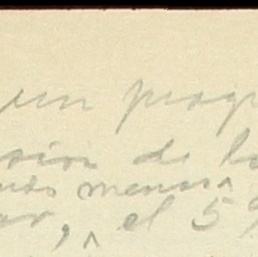 un prog
sion de lo
más menos
ar, ^ el 5